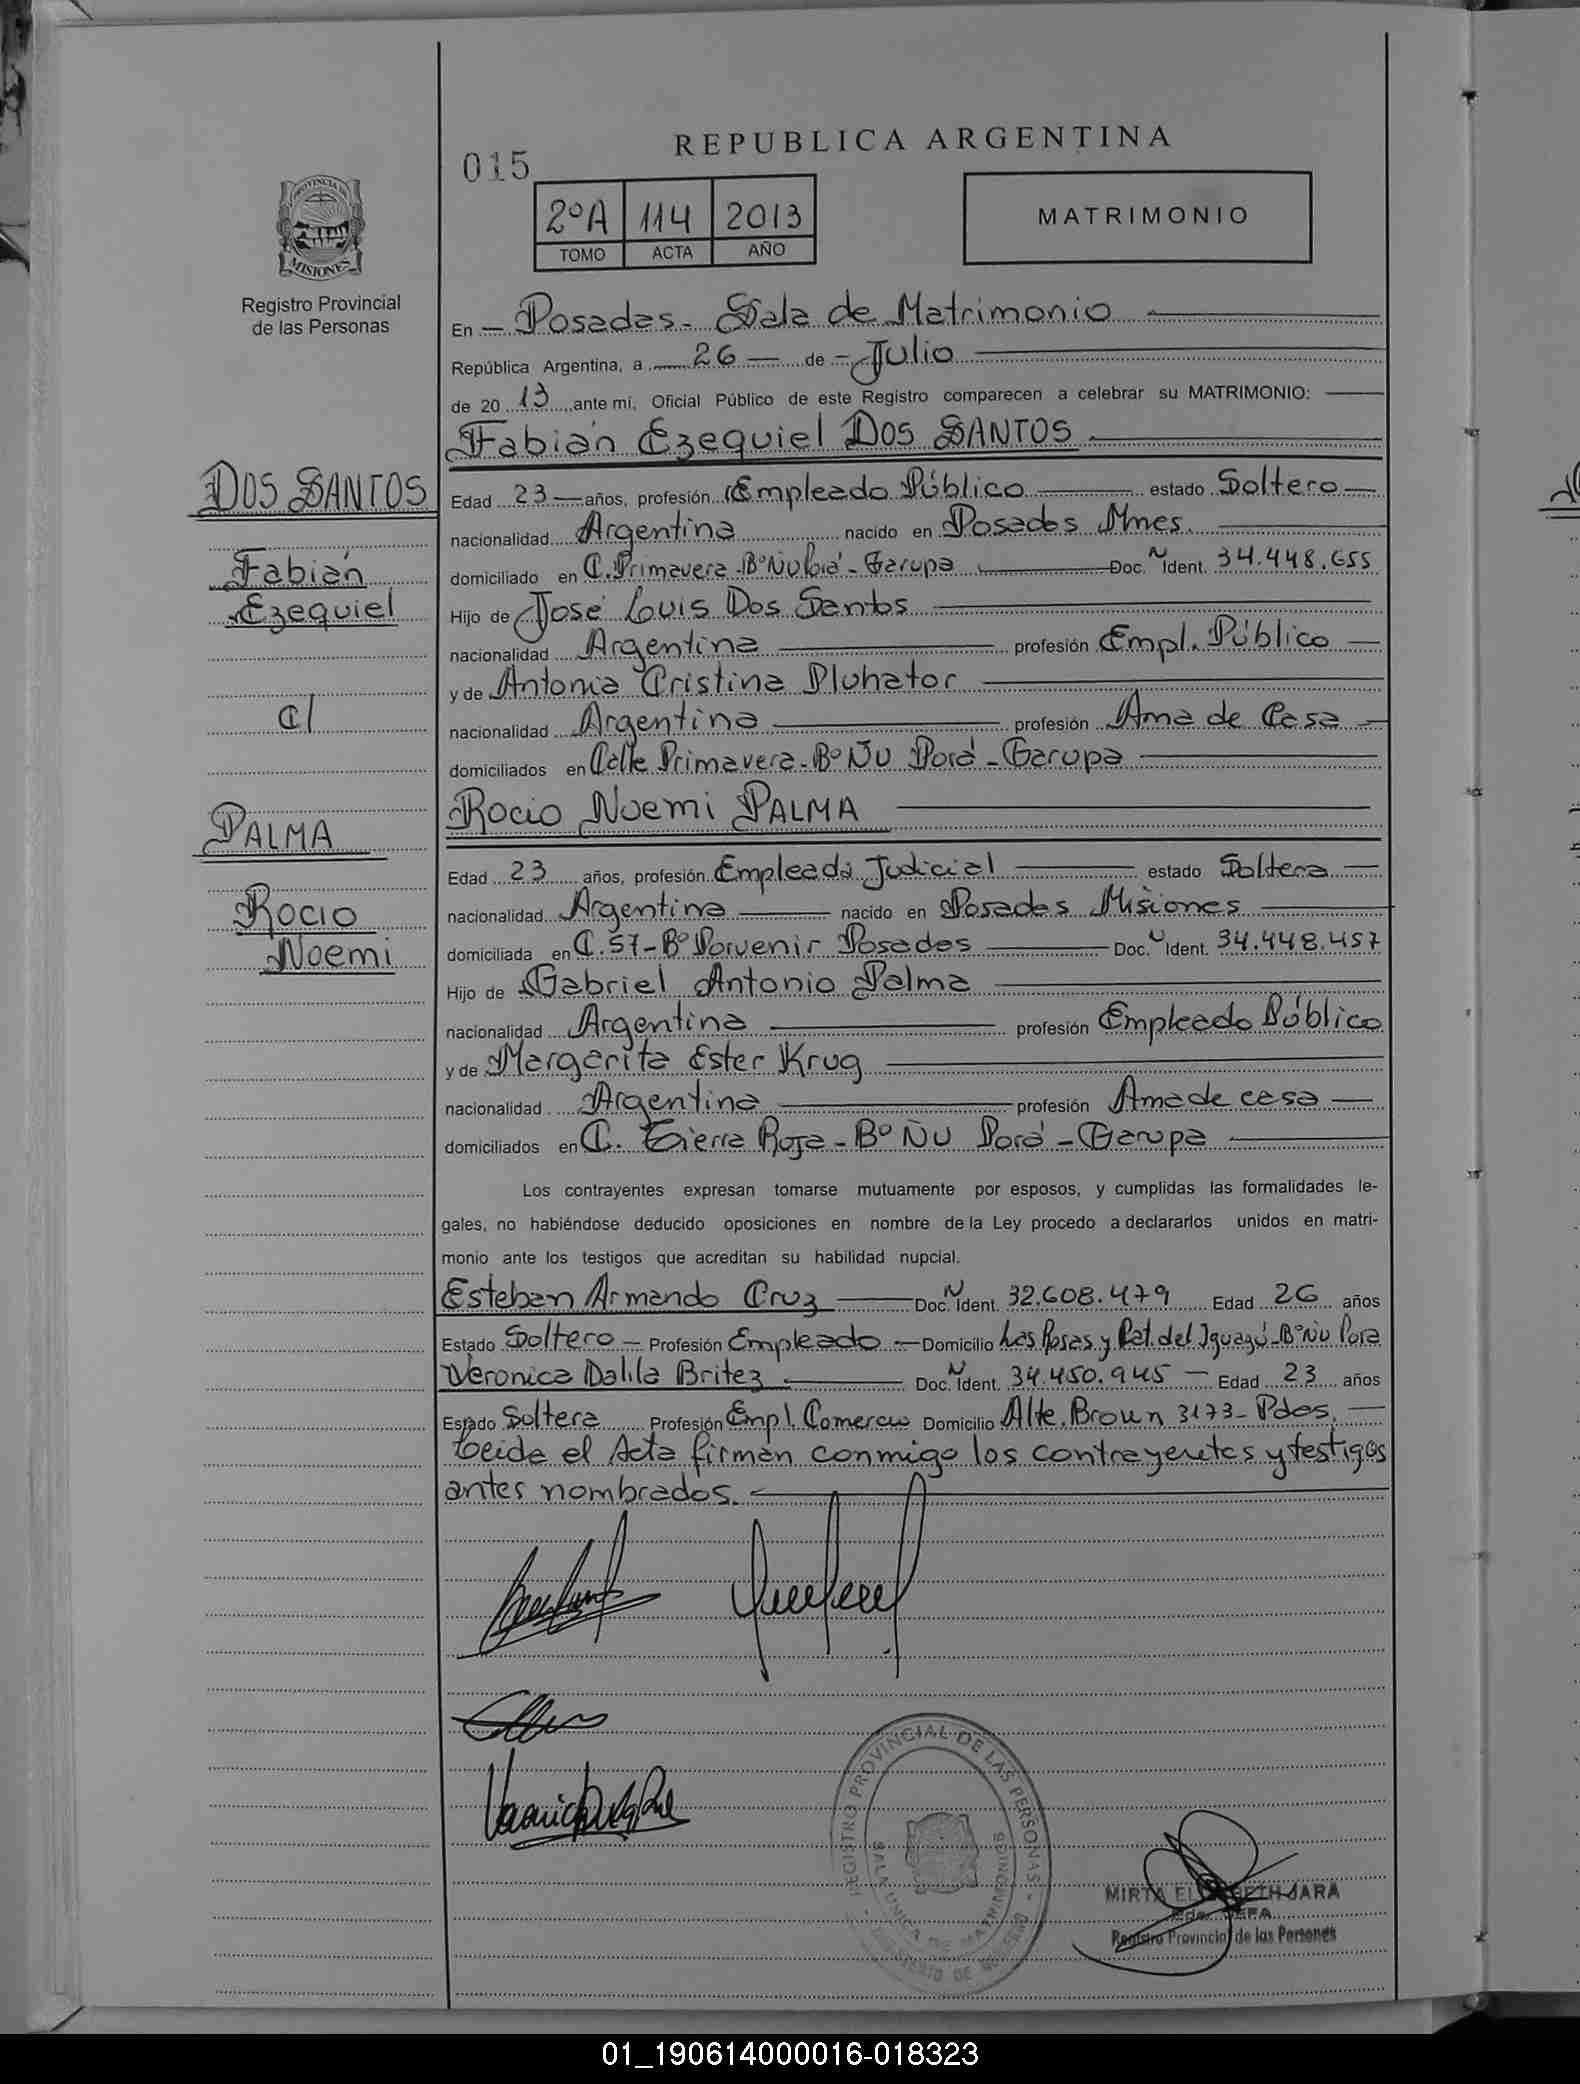 REPUBLICA ARGENTINA
015
2ºA 114 2013
TOMO ACTA AÑO
MATRIMONIO
PROVINCIA DE
MISIONES
Registro Provincial
de las Personas
En Posadas - Sala de Matrimonio
República Argentina, a 26 de Julio
de 20 13 ante mí, Oficial Público de este Registro comparecen a celebrar su MATRIMONIO:
Fabián Ezequiel DOS SANTOS
DOS SANTOS
Fabián
Ezequiel
c/
PALMA
Rocio
Noemi
Edad 23 años, profesión Empleado Público estado Soltero
nacionalidad Argentina nacido en Posadas Mnes.
domiciliado en C. Primavera - Bº Ñu Porá - Garupa Doc. N Ident. 34.448.655
Hijo de José Luis Dos Santos
nacionalidad Argentina profesión Empl. Público
y de Antonia Cristina Pluhator
nacionalidad Argentina profesión Ama de Casa
domiciliados en Calle Primavera - Bº Ñu Porá - Garupa
Rocio Noemi PALMA
Edad 23 años, profesión Empleada Judicial estado Soltera
nacionalidad Argentina nacido en Posadas Misiones
domiciliada en C. 57 - Bº Porvenir Posadas Doc. N Ident. 34.448.457
Hijo de Gabriel Antonio Palma
nacionalidad Argentina profesión Empleado Público
y de Margarita Ester Krug
nacionalidad Argentina profesión Ama de casa
domiciliados en C. Tierra Roja - Bº Ñu Porá - Garupa
Los contrayentes expresan tomarse mutuamente por esposos, y cumplidas las formalidades le-
gales, no habiéndose deducido oposiciones en nombre de la Ley procedo a declararlos unidos en matri-
monio ante los testigos que acreditan su habilidad nupcial.
Esteban Armando Cruz Doc. N Ident. 32.608.479 Edad 26 años
Estado Soltero Profesión Empleado Domicilio Las Rosas y Cat. del Iguazú - Bº Ñu Pora
Veronica Dalila Britez Doc. N Ident. 34.450.945 Edad 23 años
Estado Soltera Profesión Empl. Comercio Domicilio Alte. Brown 3173 - Pdas.
Leida el Acta firman conmigo los contrayentes y testigos
antes nombrados.
REGISTRO PROVINCIAL DE LAS PERSONAS
SALA UNICA DE MATRIMONIOS
MINISTERIO DE GOBIERNO
MIRTA ELIZABETH JARA
JEFA
Registro Provincial de las Personas
01_190614000016-018323